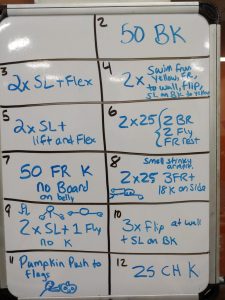 2
50 BK
3
2x SL + Flex
4
2x Swim from
yellow FR,
to wall, flip,
SL on BK to yellow
5
2x SL +
lift and Flex
6
2 x 25 { 2 BR
2 Fly
FR rest
7
50 FR K
no Board
on belly
8
Small stinky
armpit
2x25 3FR+
18 K on Side
9
2x SL + 1 Fly
no K
10
3x Flip at wall
+ SL on BK
11
Pumpkin Push to
flags
12
25 CH K